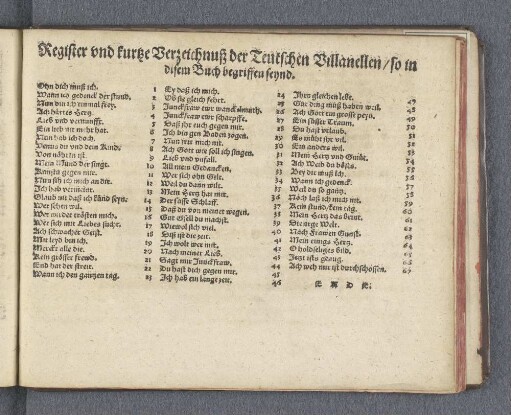 Register vnd kurtze Verzeichnuß der Teutschen Villanellen / so in
disem Buch begriffen seynd.
Ohn dich muß ich. 1
Wann ich gedenck der stund. 2
Nun bin ich einmal frey. 3
Ach hartes Hertz. 4
Lieb vnd vernunfft. 5
Ein lieb nit mehr hat. 6
Nun hab ich doch. 7
Venus du vnd dein Kinde. 8
Von nöhten ist. 9
Mein Mund der singt. 10
11
Nun siht ich mich an dir. 12
Ich hab vermeint. 13
Glaub nit daß ich künd seyn. 14
Wer sehen wil. 15
Wer wirdet trösten mich. 16
Wer sich mit Liebes sucht. 17
Ach schwacher Geist. 18
Mit leyd bin ich. 19
Merckt alle die. 20
Kein grösser frewd. 21
End hat der streit. 22
Wann ich den gantzen tag. 23
Ey daß ich mich. 24
Ob sie gleich fehrt. 25
Junckfraw ewr wanckelmuth. 26
Junckfraw ewr scharpffe. 27
Daß ihr euch gegen mir. 28
Ich bin gen Baden zogen. 29
Nun was mich mit. 30
Ach Gott wie soll ich singen. 31
Lieb vnd vnfall. 32
All mein Gedancken. 33
Wer sich ohn Gelt. 34
Weil du dann wilt. 35
Mein Hertz hat mir. 36
Der süsse Schlaff. 37
Daß du von meinet wegen. 38
Gut Gsell du machst. 39
Wiewol sich viel. 40
Diß ist die zeit. 41
Ich wolt wer mir. 42
Nach meiner Lieb. 43
Sagt mir Junckfraw. 44
Du hast dich gegen mir. 45
Ich hab ein lange zeit. 46
Ihrs gleichen lebt. 47
Gut ding muß haben weil. 48
Ach Gott ein grosse peyn. 49
Ein süsser Traum. 50
Du hast vrlaub. 51
So müßt ihr wil. 52
Ein anders wil. 53
Mein Hertz vnd Gmüt. 54
Ach Weib du böses. 55
Bey dir muß ich. 56
Wann ich gedenck. 57
Weil du so gantz. 58
Noch laß ich mich nit. 59
Kein stund / kein tag. 60
Mein Hertz das brint. 61
Die arge Welt. 62
Nach Frawen Gunst. 63
Mein einigs Hertz. 64
O holdseliges bild. 65
Jetzt ists genug. 66
Ach weh mir ist durchschossen. 67
E N D E.